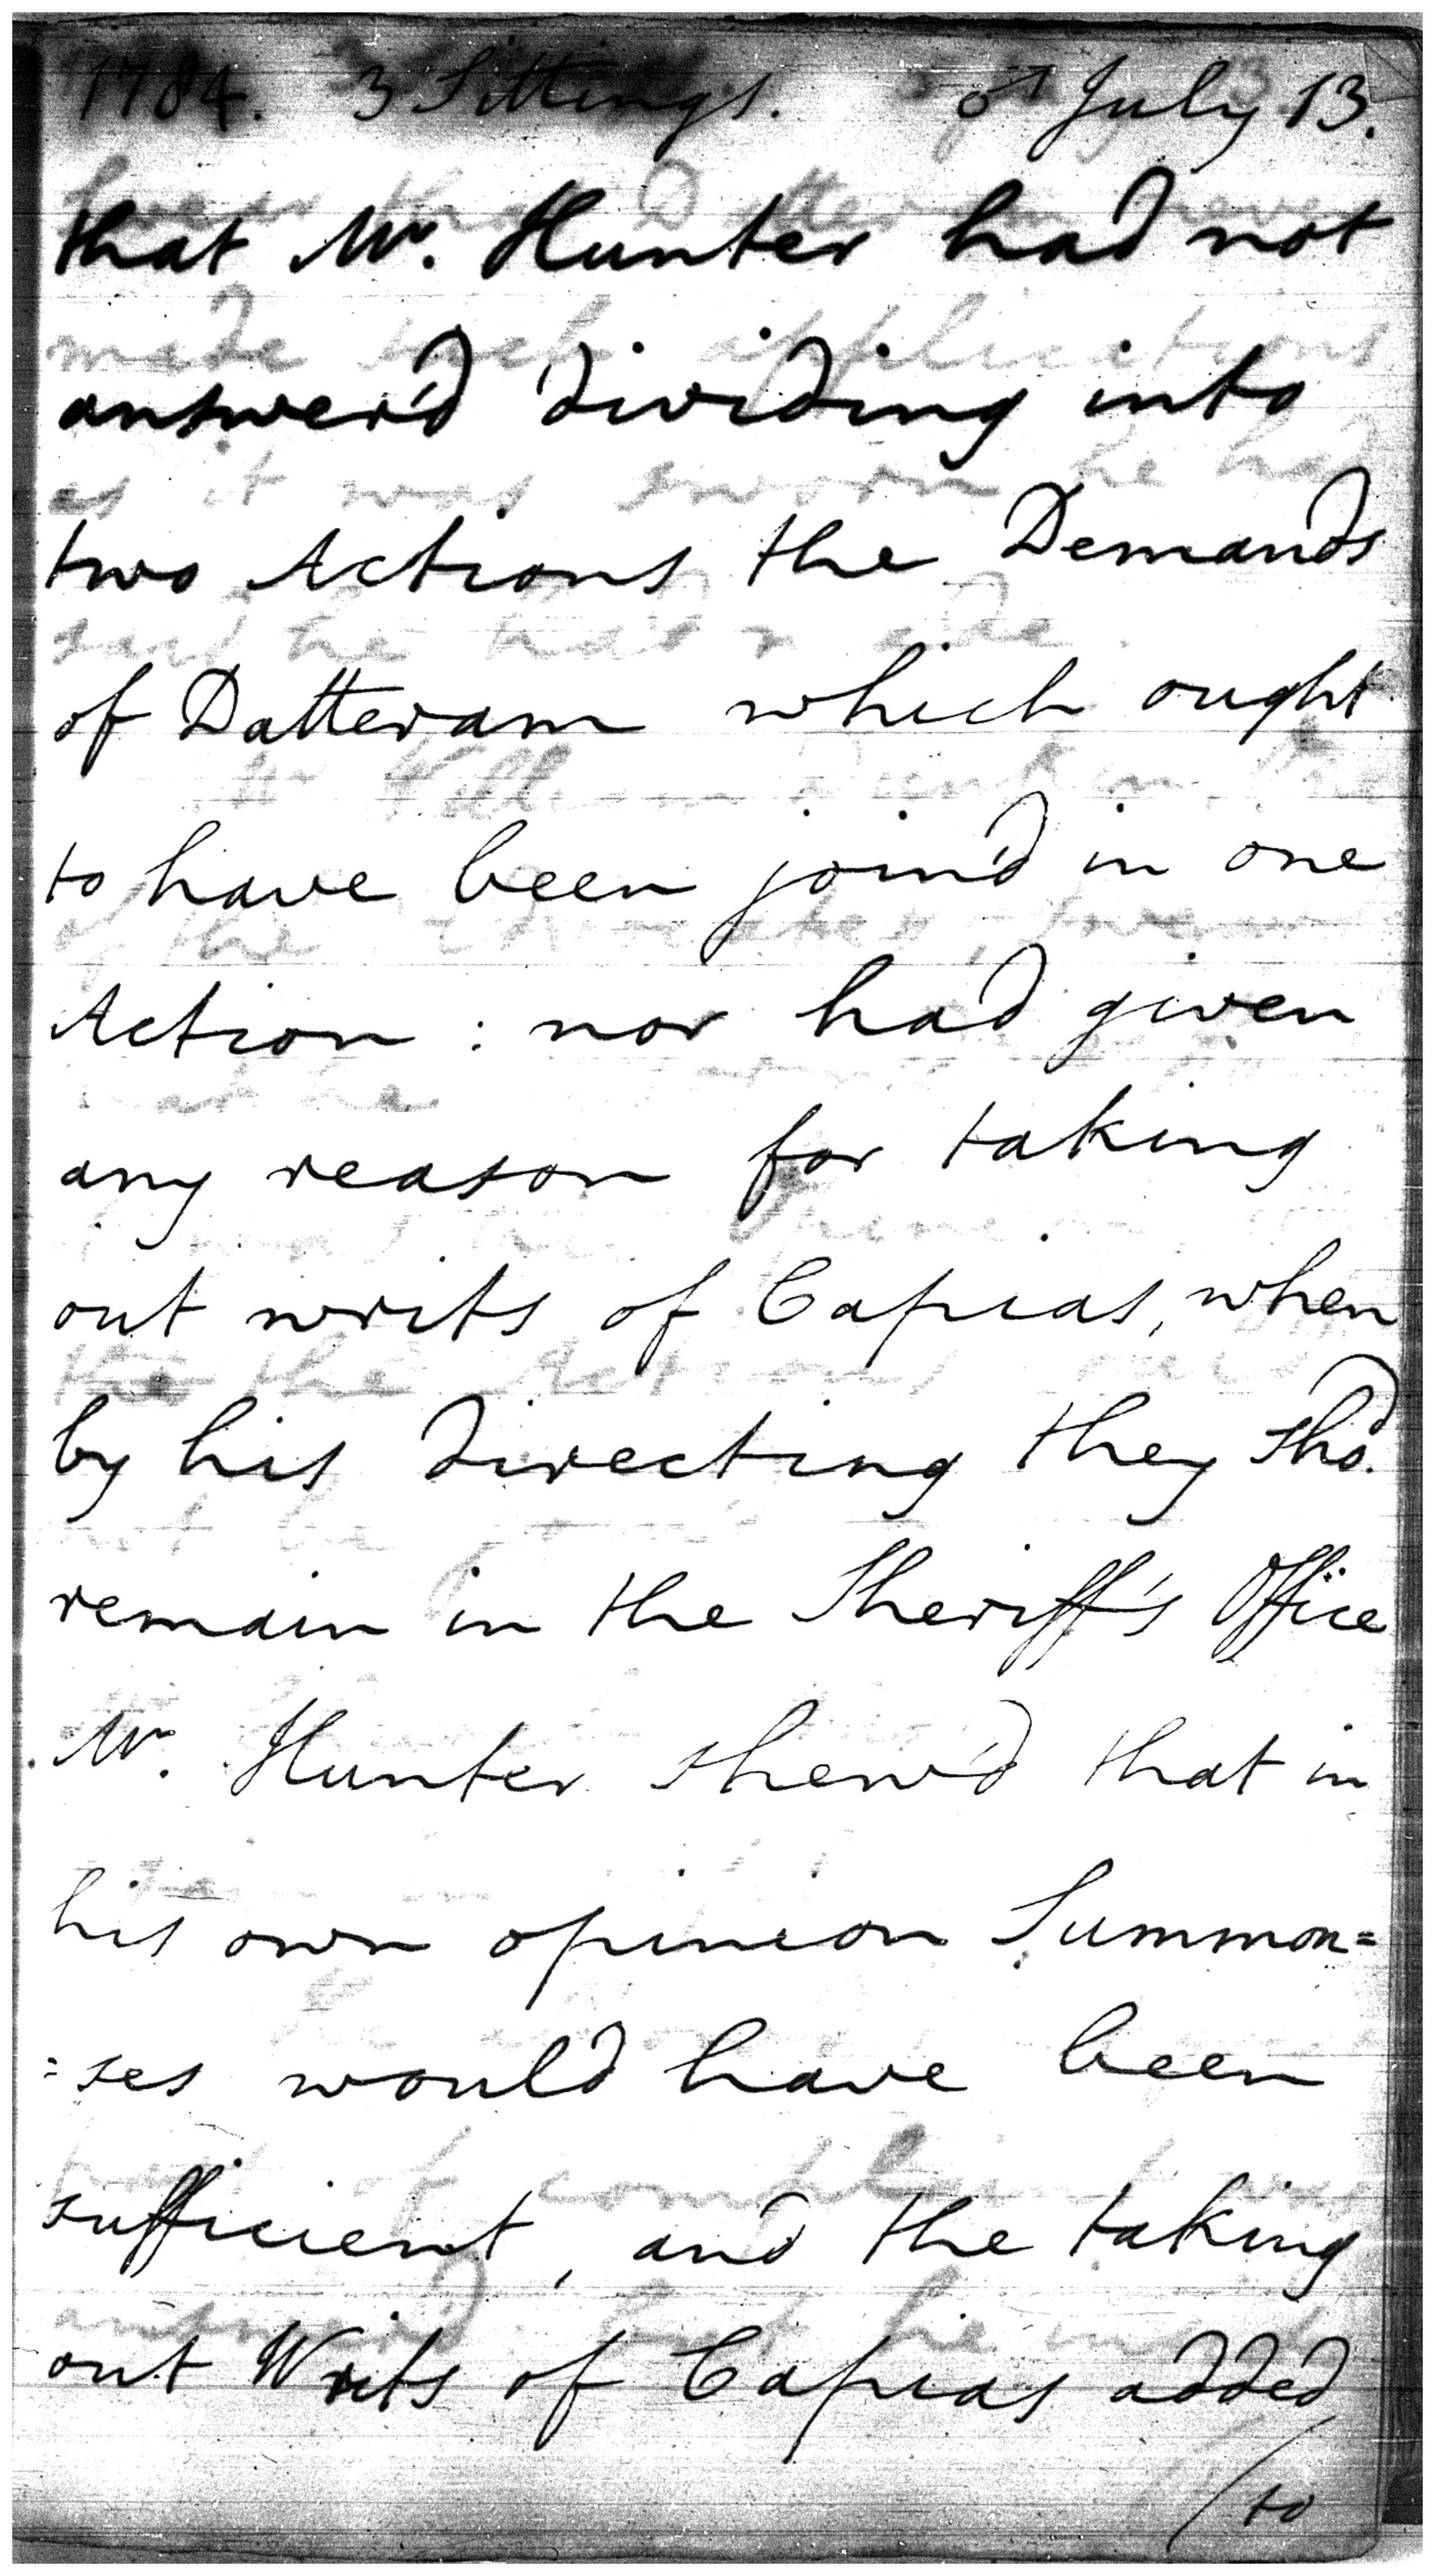 1784. 3 Sittings. ♂ July 13.
that Mr. Hunter had not
answer'd dividing into
two Actions the Demands
of Datteram which ought
to have been join'd in one
Action : nor had given
any reason for taking
out writs of Capias, when
by his directing they shod.
remain in the Sheriff's Office
Mr. Hunter shew'd that in
his own opinion Summon=
=ses would have been
sufficient, and the taking
out Writs of Capias added
/to